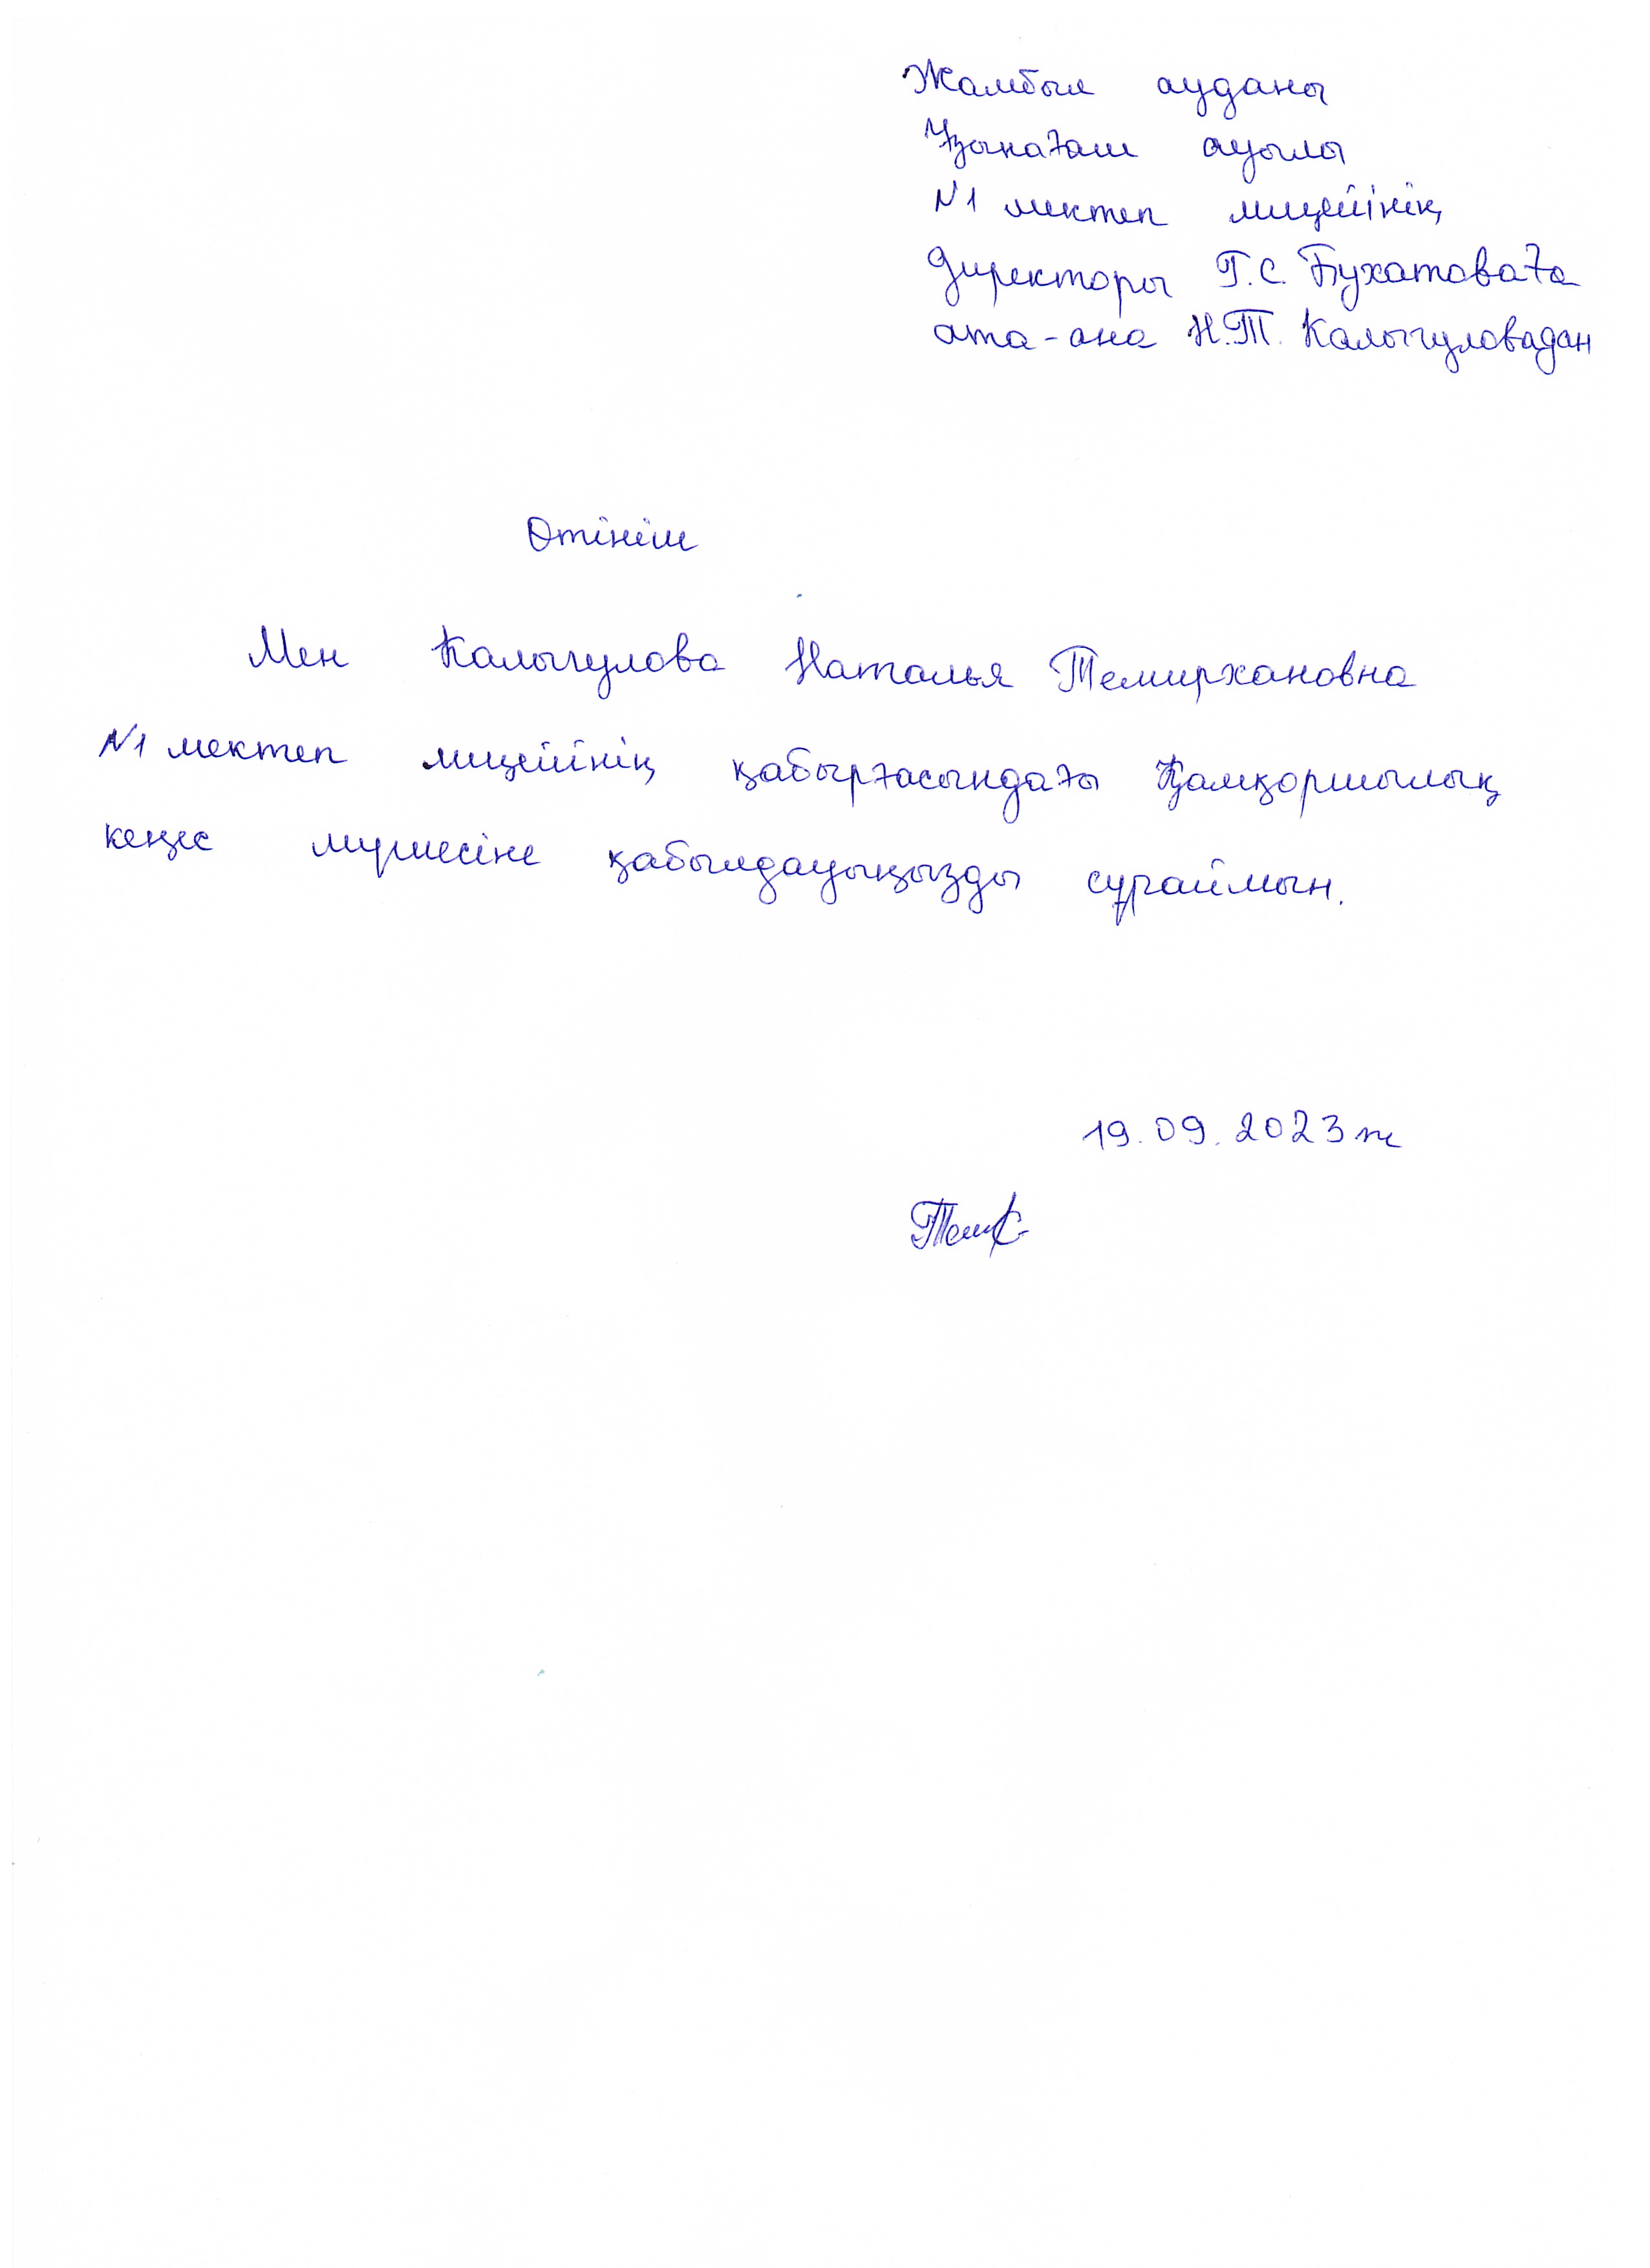 Жамбыл ауданы
Ұзынағаш ауылы
№1 мектеп лицейінің
директоры Г.С. Бухатоваға
ата-ана Н.Т. Калыгуловадан
Өтініш
Мен Калыгулова Наталья Темирхановна
№1 мектеп лицейінің қабырғасындағы Қамқоршылық
кеңес мүшесіне қабылдауыңызды сұраймын.
19.09.2023 ж